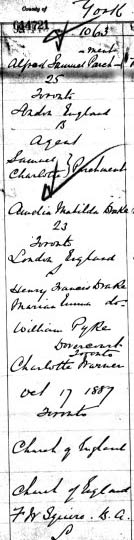 County of
York
014721
1063
Alfred Samuel Parch-
-ment
25
Toronto
London England
B
Agent
Samuel
Charlotte } Parchment
Amelia Matilda Drake
23
Toronto
London England
S
Henry Francis Drake
Marian Emma do.
William Pyke
Toronto
Charlotte Warner
Oct 17 1887
Toronto
Church of England
Church of England
F W Squire B. A.